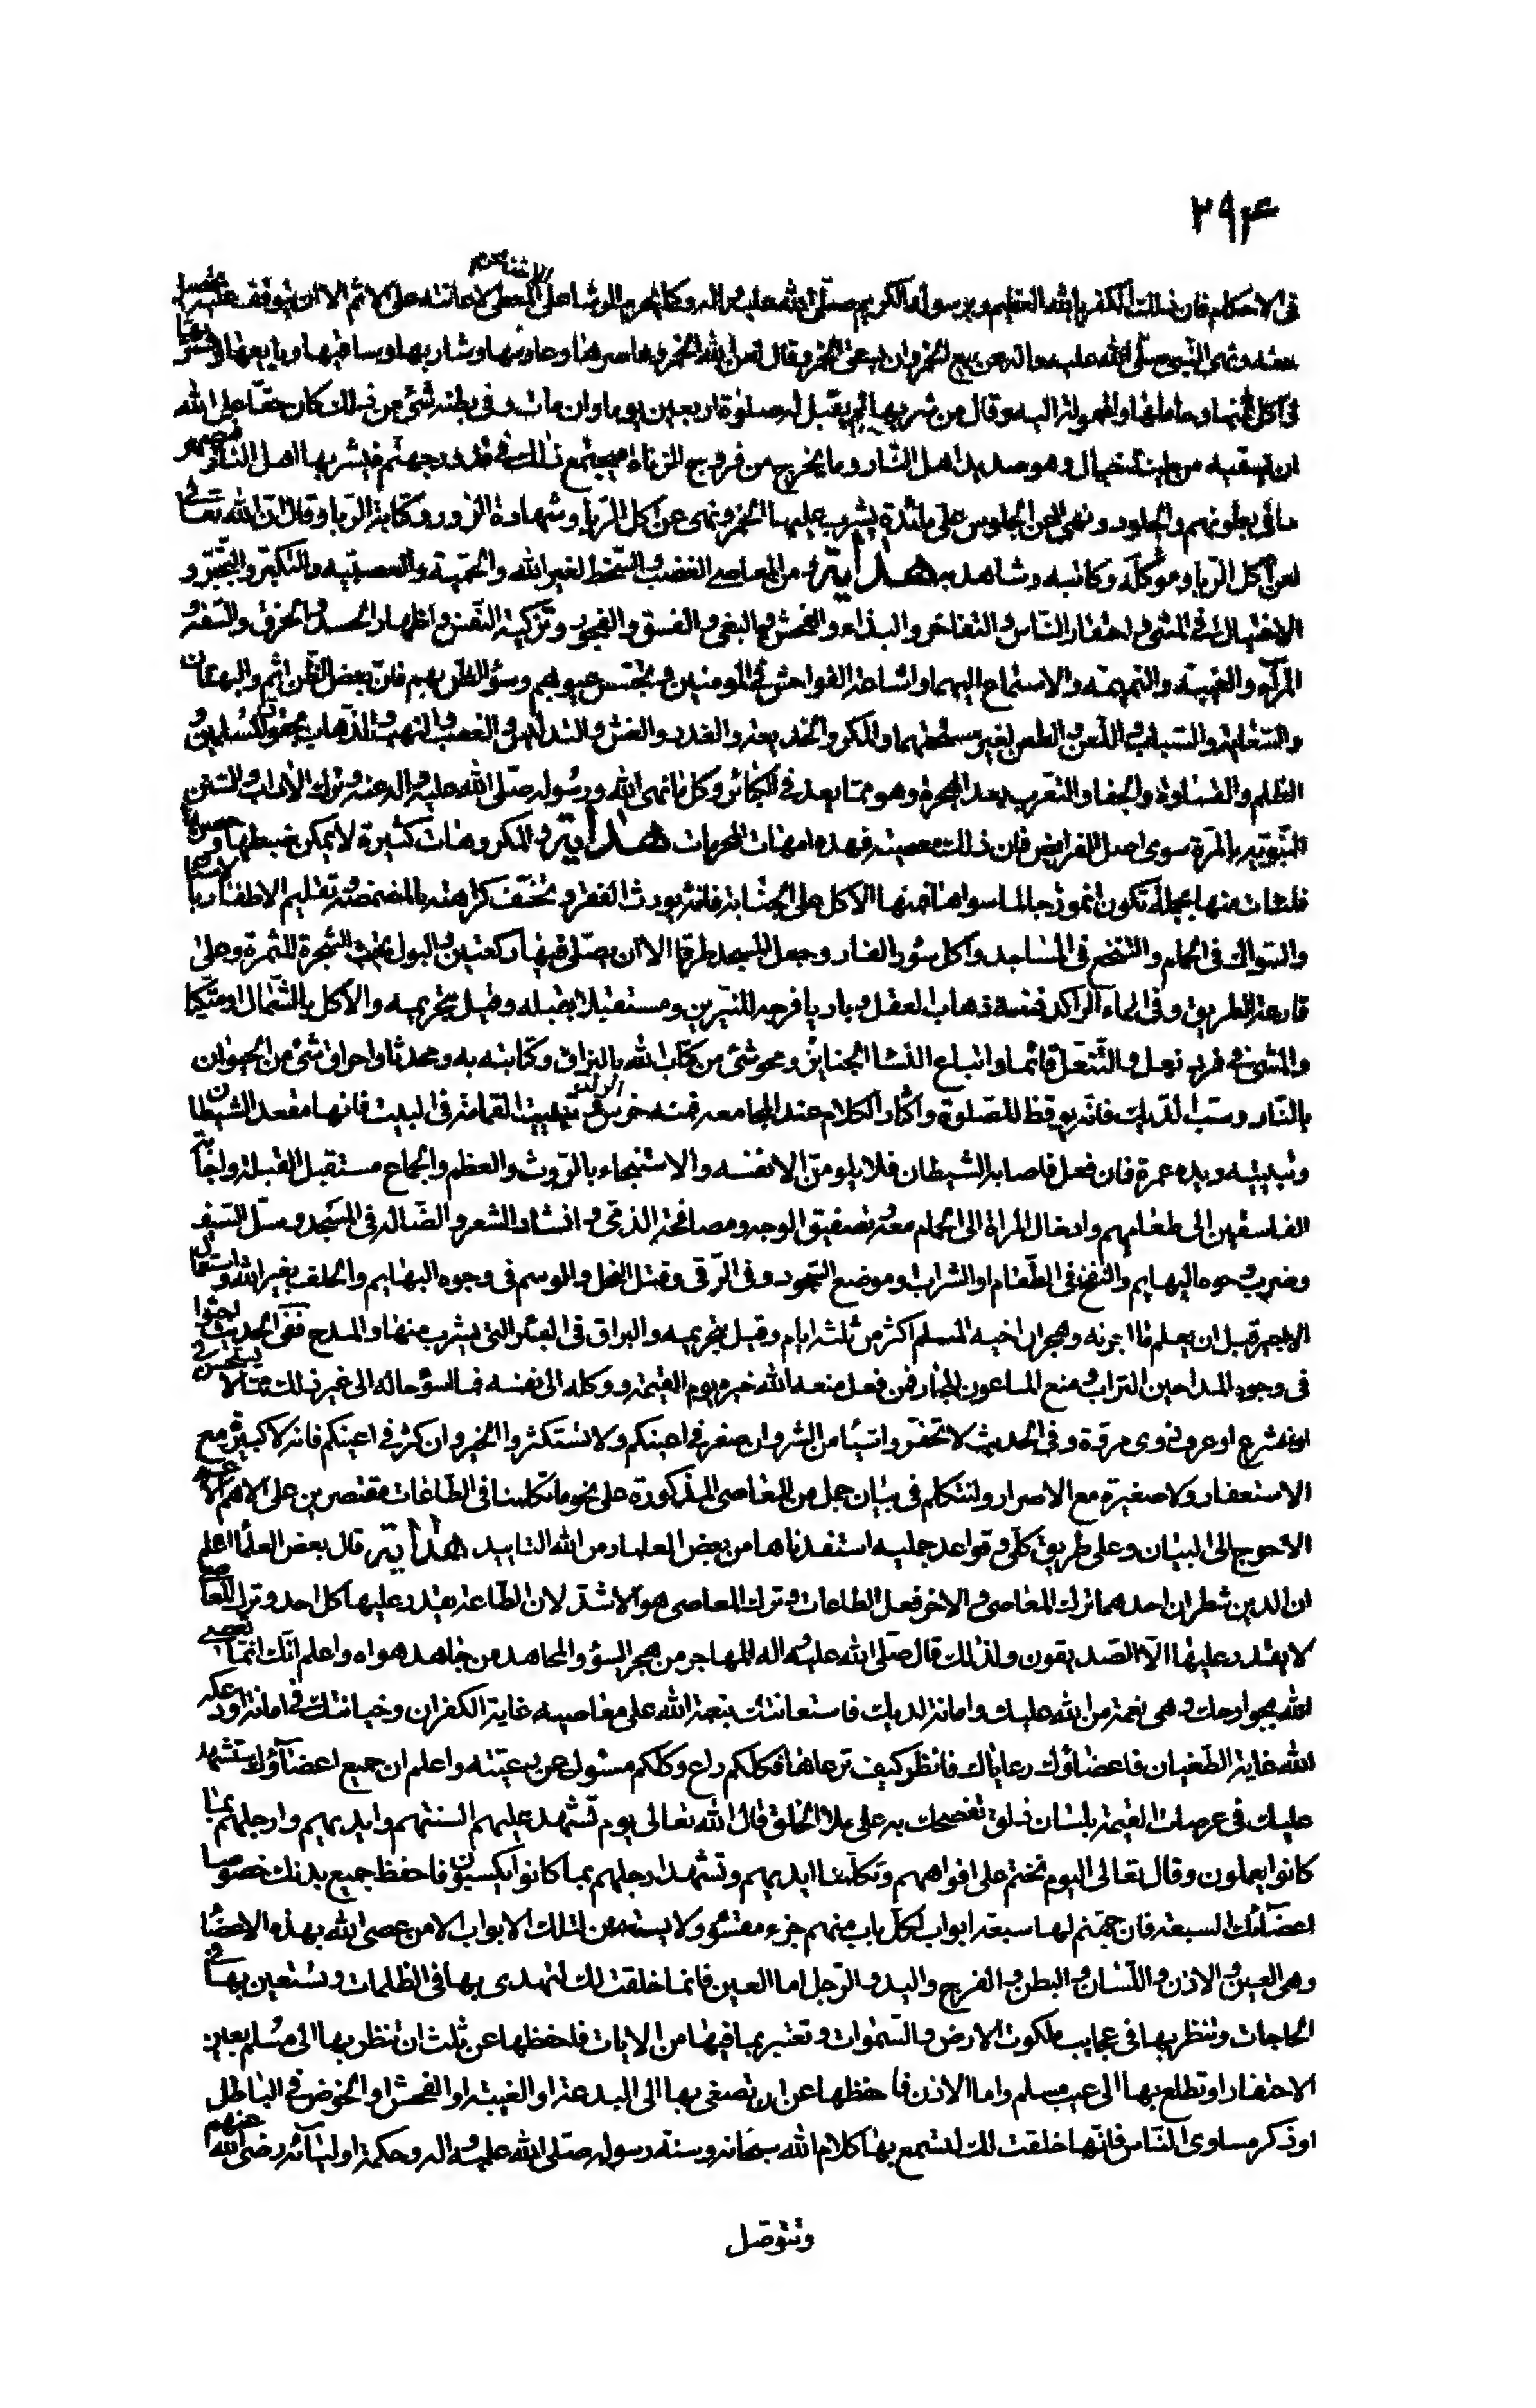 ۲۹۴
فى الاحكام فان ذلك الكفر بالله العظيم وبرسوله الكريم صلى الله عليه واله وكما يحرم الرشا على الاخذ يحرم على المعطى لاعانته على الاثم الا ان يتوقف عليه تحصيل
حقه ونهى النبى صلى الله عليه واله عن بيع الخمر وان يسقى الخمر وقال لعن الله الخمر وعاصرها وغارسها وشاربها وساقيها وبايعها ومشتريها
واكل ثمنها وحاملها والمحمولة اليه وقال من شربها لم يقبل له صلوة اربعين يوما وان مات وفى بطنه شئ من ذلك كان حقا على الله
ان يسقيه من طينة خبال وهو صديد اهل النار وما يخرج من فروج الزناة فيجتمع ذلك فى قدور جهنم فيشربها اهل النار فيصهر
ما فى بطونهم والجلود ونهى عن الجلوس على مائدة يشرب عليها الخمر ونهى عن اكل الربا وشهادة الزور وكتابة الربا وقال ان الله تعالى
لعن اكل الربا وموكله وكاتبه وشاهديه هداية ومن المعاصى الغضب والسخط لغير الله والحمية والعصبية والتكبر والتجبر و
الاختيال فى المشى واحتقار الناس والتفاخر والبذاء والفحش والبغى والفسق والفجور وتزكية النفس واظهار الحسد والخرق والسفه و
المرآء والغيبة والنميمة والاستماع اليهما واشاعة الفواحش فى المومنين وتجسس عيوبهم وسوء الظن بهم فان بعض الظن اثم والبهتان
والسعاية والسباب واللعن والطعن لغير مستحقهما والمكر والخديعة والغدر والغش والتدليس والغصب والنهب والذهاب بحقوق المسلمين و
الظلم والقساوة والجفا والتعرب بعد الهجرة وهو مما يعد فى الكبائر وكل ما نهى الله ورسوله صلى الله عليه واله عنه وترك الاداب والسنن
النبوية بالمرة سوى اصل الفرايض فان ذلك معصية فهذه امهات المحرمات هداية والمكروهات كثيرة لا يمكن ضبطها وحصرها
فلنات منها بجملة تكون انموذجا لما سواها فمنها الاكل على الجنابة فانه يورث الفقر وتخفف كراهته بالمضمضة وتقليم الاظفار بالاسنان
والسواك فى الحمام والتنخع فى المساجد واكل سؤر الفار وجعل المسجد طرقا الا ان يصلى فيها ركعتين والبول تحت الشجرة المثمرة وعلى
قارعة الطريق وفى الماء الراكد فمنه ذهاب العقل وباديا فرجه للنيرين ومستقبلا بقبله وقيل بتحريمه والاكل بالشمال او متكيا
والمشى فى فرد نعل والتنعل قائما واتباع النساء الجنايز ومحو شئ من كتاب الله بالبزاق وكتابته به ومحدثا واحراق شئ من الحيوان
بالنار وسب الديك فانه يوقظ للصلوة واكثار الكلام عند المجامعة فمنه خرس الولد وتبييت القمامة فى البيت فانها مقعد الشيطان
وتبييته ويده غمرة فان فعل فاصابه الشيطان فلا يلومن الا نفسه والاستنجاء بالروث والعظم والجماع مستقبل القبلة واجابة
الفاسقين الى طعامهم وادخال المراة الى الحمام وتصفيق الوجه ومصافحة الذمى وانشاد الشعر والضالة فى المسجد وسل السيف
وضرب وجوه البهايم والنفخ فى الطعام او الشراب وموضع السجود وفى الرقى وقتل النحل والوسم فى وجوه البهايم والحلف بغير الله واستعمال
الاجير قبل ان يعلم ما اجرته وهجران اخيه المسلم اكثر من ثلثة ايام وقيل بتحريمه والبزاق فى البئر التى يشرب منها والمدح ففى الحديث احثوا
فى وجوه المداحين التراب ومنع الماعون الجار فمن فعل منعه الله خيره يوم القيمة ووكله الى نفسه فما اسوء حاله الى غير ذلك مما لا يستحسن فى
شرع او عرف ذوى مروة وفى الحديث لا تحقروا شيئا من الشر وان صغر فى اعينكم ولا تستكثروا الخير وان كثر فى اعينكم فانه لا كبيرة مع
الاستغفار ولا صغيرة مع الاصرار ولنتكلم فى بيان جمل من المعاصى المذكورة على نحو ما تكلمنا فى الطاعات مقتصرين على الاهم
الاحوج الى البيان وعلى طريق كلى وقواعد جلية استفدناها من بعض العلماء ومن الله التاييد هداية قال بعض العلماء اعلم
ان الدين شطران احدهما ترك المعاصى والاخر فعل الطاعات وترك المعاصى هو الاشد لان الطاعة يقدر عليها كل احد وترك المعاصى
لا يقدر عليها الا الصديقون ولذلك قال صلى الله عليه واله المهاجر من هجر السوء والمجاهد من جاهد هواه واعلم انك انما تعصى
الله بجوارحك وهى نعمة من الله عليك وامانة لديك فاستعانتك بنعمة الله على معاصيه غاية الكفران وخيانتك فى امانة اودعكه
الله غاية الطغيان فاعضاؤك رعاياك فانظر كيف ترعاها فكلكم راع وكلكم مسئول عن رعيته واعلم ان جميع اعضآؤك ستشهد
عليك فى عرصات القيمة بلسان ذلق تفضحك به على ملاء الخلق قال الله تعالى يوم تشهد عليهم السنتهم وايديهم وارجلهم بما
كانوا يعملون وقال تعالى اليوم نختم على افواههم وتكلمنا ايديهم وتشهد ارجلهم بما كانوا يكسبون فاحفظ جميع بدنك خصوصا
اعضآئك السبعة فان جهنم لها سبعة ابواب لكل باب منهم جزء مقسوم ولا يتعين لتلك الابواب الا من عصى الله بهذه الاعضا
وهى العين والاذن واللسان والبطن والفرج واليد والرجل اما العين فانما خلقت لك لتهدى بها فى الظلمات وتستعين بها فى
الحاجات وتنظر بها فى عجايب ملكوت الارض والسموات وتعتبر بما فيها من الايات فاحفظها عن ثلث ان تنظر بها الى مسلم بعين
الاحتقار او تطلع بها الى عيب مسلم واما الاذن فاحفظها عن ان تصغى بها الى البدعة او الغيبة او الفحش او الخوض فى الباطل
او ذكر مساوى الناس فانها خلقت لك لتسمع بها كلام الله سبحانه وسنة رسوله صلى الله عليه واله وحكمة اوليآئه رضى الله عنهم
وتتوصل